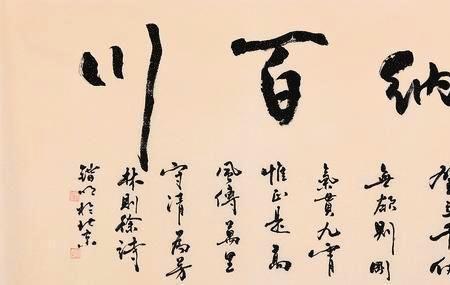 納百川
壁立千仞
無欲則剛
氣貫九霄
惟正是高
風傳萬里
守清為芳
林則徐詩
於北京